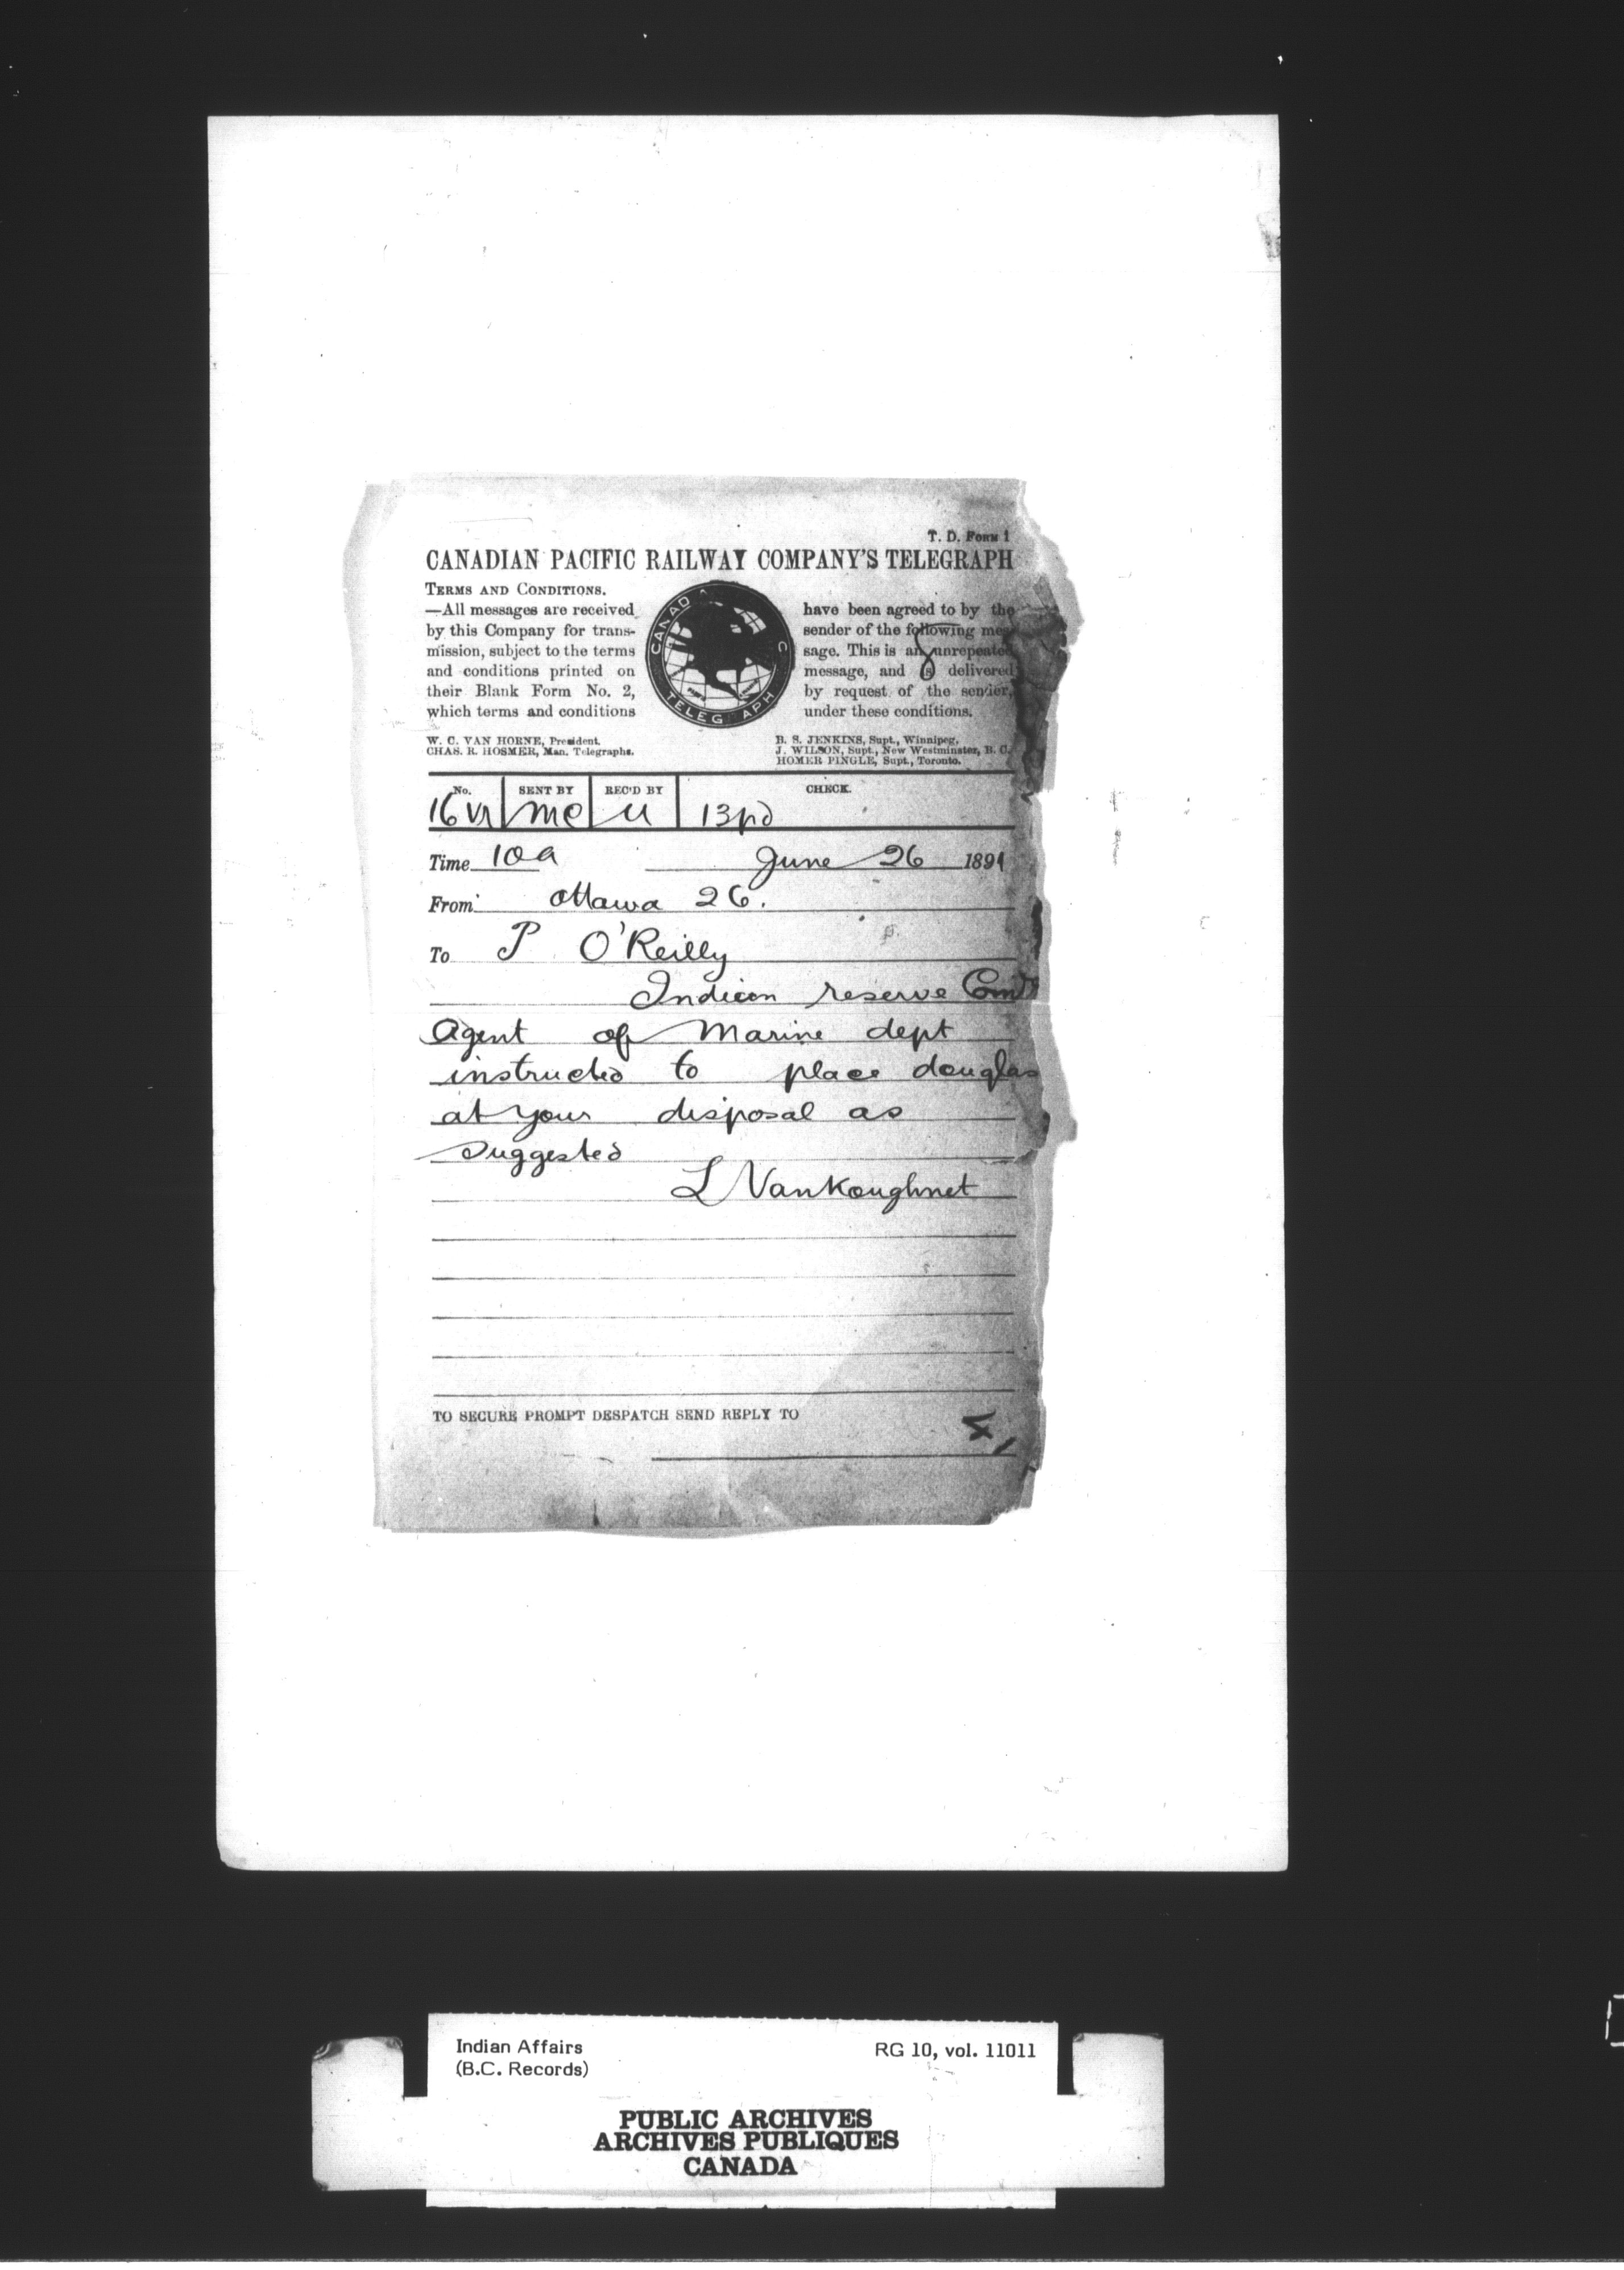 T. D. FORM 1
CANADIAN PACIFIC RAILWAY COMPANY'S TELEGRAPH
TERMS AND CONDITIONS.
—All messages are received
by this Company for trans-
mission, subject to the terms
and conditions printed on
their Blank Form No. 2,
which terms and conditions
TELEGRAPH
have been agreed to by the
sender of the following mes
sage. This is an unrepeated
message, and is delivered
by request of the sender,
under these conditions.
W. C. VAN HORNE, President.
CHAS. R. HOSMER, Man. Telegraphs.
B. S. JENKINS, Supt., Winnipeg,
J. WILSON, Supt., New Westminster, B. C.
HOMER PINGLE, Supt., Toronto.
No. SENT BY REC'D BY CHECK.
16 mc u 13pd
Time 10a June 26 1891
From Ottawa 26.
To P O'Reilly
Indian reserve
Agent of Marine dept
instructed to place douglas
at your disposal as
suggested
L VanKoughnet
TO SECURE PROMPT DESPATCH SEND REPLY TO
Indian Affairs
(B.C. Records)
RG 10, vol. 11011
PUBLIC ARCHIVES
ARCHIVES PUBLIQUES
CANADA